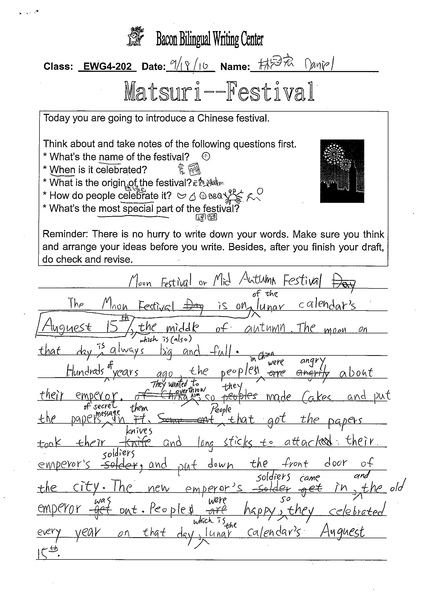 Bacon Bilingual Writing Center
Class: EWG4-202 Date: 9/18/10 Name: Daniel
Matsuri--Festival
Today you are going to introduce a Chinese festival.
Think about and take notes of the following questions first.
* What's the name of the festival?
* When is it celebrated?
* What is the origin of the festival?
* How do people celebrate it? BBQ
* What's the most special part of the festival?
Reminder: There is no hurry to write down your words. Make sure you think
and arrange your ideas before you write. Besides, after you finish your draft,
do check and revise.
Moon Festival or Mid Autumn Festival Day
of the
The Moon Festival Day is on lunar calendar's
Auguest 15th, the middle of autumn. The moon on
which is (also)
that day is always big and full.
of in China were angry
Hundreds years ago, the peoples are angrily about
They wanted to overthrow they
their emperor. so peoples made Cakes and put
of secret message them People
the papers in it. that got the papers
knives
took their knife and long sticks to attacked their
soldiers
emperor's solder, and put down the front door of
soldiers came and
the city. The new emperor's solder get in, the old
was were so
emperor get out. Peoples are happy, they celebrated
which is the
every year on that day, lunar calendar's Auguest
15th.